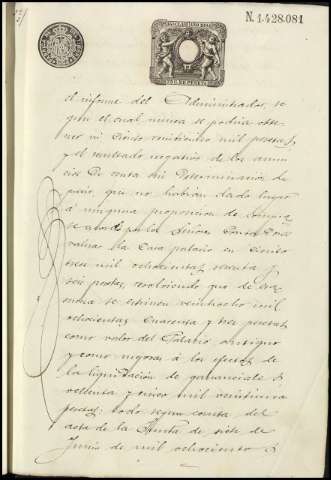 N. 1.428.081
el informe del Administrador, se
gun el cual nunca se podria obte
ner ni ciento veinticinco mil pesetas,
y el resultado negativo de los anun
cios de venta sin determinacion de
precio, que no habian dado lugar
á ninguna proposicion de compra,
se acordó por los Señores
valuar la Casa palacio en ciento
tres mil ochocientas sesenta y
seis pesetas, resolviendo que de esa
suma se estimen veintiocho mil
ochocientas cuarenta y tres pesetas
como valor del Palacio antiguo
y como mejoras á los efectos de
la liquidacion de gananciales
ochenta y cinco mil veintitres
pesetas: todo segun consta del
acta de la Junta de siete de
Junio de mil ochocientos